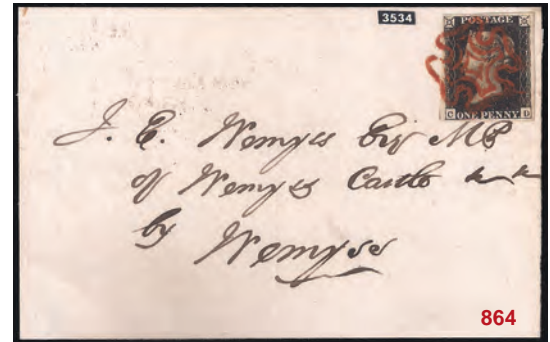 3534
POSTAGE
C ONE PENNY D
J. E. Wemyss Esqr MP
of Wemyss Castle
by Wemyss
864